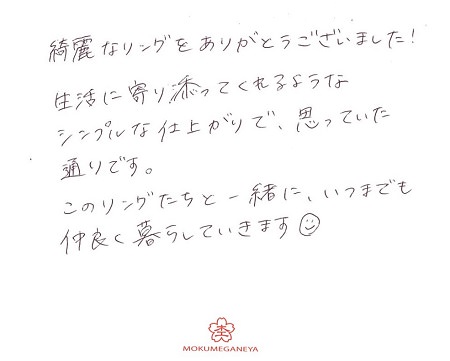 綺麗なリングをありがとうございました!
生活に寄り添ってくれるような
シンプルな仕上がりで、思っていた
通りです。
このリングたちと一緒に、いつまでも
仲良く暮らしていきます☺
MOKUMEGANEYA